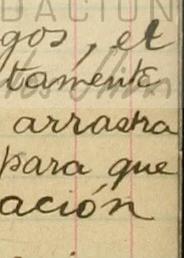 DACIÓN
gos, et
tamente
arrastra
para que
ación